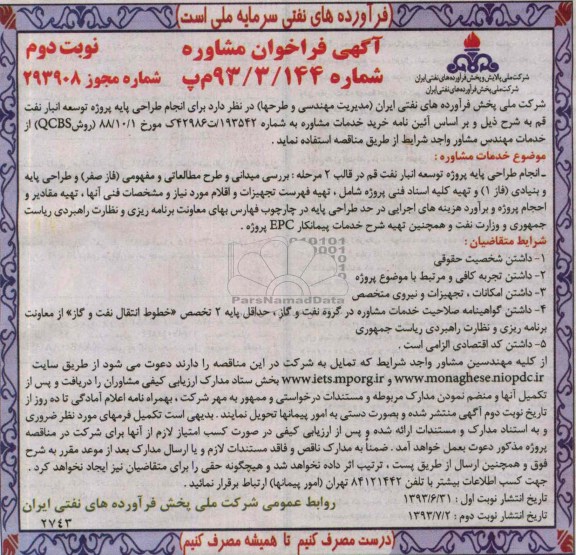 (فرآورده های نفتی سرمایه ملی است)
آگهی فراخوان مشاوره
نوبت دوم
شماره ۹۳/۳/۱۴۴م‌پ
شماره مجوز ۲۹۳۹۰۸
شرکت ملی پالایش و پخش فرآورده های نفتی ایران
شرکت ملی پخش فرآورده های نفتی ایران
شرکت ملی پخش فرآورده های نفتی ایران (مدیریت مهندسی و طرحها) در نظر دارد برای انجام طراحی پایه پروژه توسعه انبار نفت
قم به شرح ذیل و بر اساس آئین نامه خرید خدمات مشاوره به شماره ۱۹۳۵۴۲/ت۴۲۹۸۶ک مورخ ۸۸/۱۰/۱ (روشQCBS) از
خدمات مهندس مشاور واجد شرایط از طریق مناقصه استفاده نماید .
موضوع خدمات مشاوره :
ـ انجام طراحی پایه پروژه توسعه انبار نفت قم در قالب ۲ مرحله : بررسی میدانی و طرح مطالعاتی و مفهومی (فاز صفر) و طراحی پایه
و بنیادی (فاز ۱) و تهیه کلیه اسناد فنی پروژه شامل ، تهیه فهرست تجهیزات و اقلام مورد نیاز و مشخصات فنی آنها ، تهیه مقادیر و
احجام پروژه و برآورد هزینه های اجرایی در حد طراحی پایه در چارچوب فهارس بهای معاونت برنامه ریزی و نظارت راهبردی ریاست
جمهوری و وزارت نفت و همچنین تهیه شرح خدمات پیمانکار EPC پروژه .
شرایط متقاضیان :
۱- داشتن شخصیت حقوقی
۲- داشتن تجربه کافی و مرتبط با موضوع پروژه
۳- داشتن امکانات ، تجهیزات و نیروی متخصص
۴- داشتن گواهینامه صلاحیت خدمات مشاوره در گروه نفت و گاز ، حداقل پایه ۲ تخصص «خطوط انتقال نفت و گاز» از معاونت
برنامه ریزی و نظارت راهبردی ریاست جمهوری
۵- داشتن کد اقتصادی الزامی است .
از کلیه مهندسین مشاور واجد شرایط که تمایل به شرکت در این مناقصه را دارند دعوت می شود از طریق سایت
www.monaghese.niopdc.ir و www.iets.mporg.ir بخش ستاد مدارک ارزیابی کیفی مشاوران را دریافت و پس از
تکمیل آنها و منضم نمودن مدارک مربوطه و مستندات درخواستی و ممهور به مهر شرکت ، بهمراه نامه اعلام آمادگی تا ده روز از
تاریخ نوبت دوم آگهی منتشر شده و بصورت دستی به امور پیمانها تحویل نمایند . بدیهی است تکمیل فرمهای مورد نظر ضروری
و به استناد مدارک و مستندات ارائه شده و پس از ارزیابی کیفی در صورت کسب امتیاز لازم از آنها برای شرکت در مناقصه
پروژه مذکور دعوت بعمل خواهد آمد . ضمناً به مدارک ناقص و فاقد مستندات لازم و یا ارسال مدارک بعد از موعد مقرر به شرح
فوق و همچنین ارسال از طریق پست ، ترتیب اثر داده نخواهد شد و هیچگونه حقی را برای متقاضیان نیز ایجاد نخواهد کرد .
جهت کسب اطلاعات بیشتر با تلفن ۸۴۱۲۱۴۴۲ تهران (امور پیمانها) ارتباط برقرار نمائید .
تاریخ انتشار نوبت اول : ۱۳۹۳/۶/۳۱
تاریخ انتشار نوبت دوم : ۱۳۹۳/۷/۲
روابط عمومی شرکت ملی پخش فرآورده های نفتی ایران
۲۷۴۳
(درست مصرف کنیم تا همیشه مصرف کنیم)
ParsNamadData